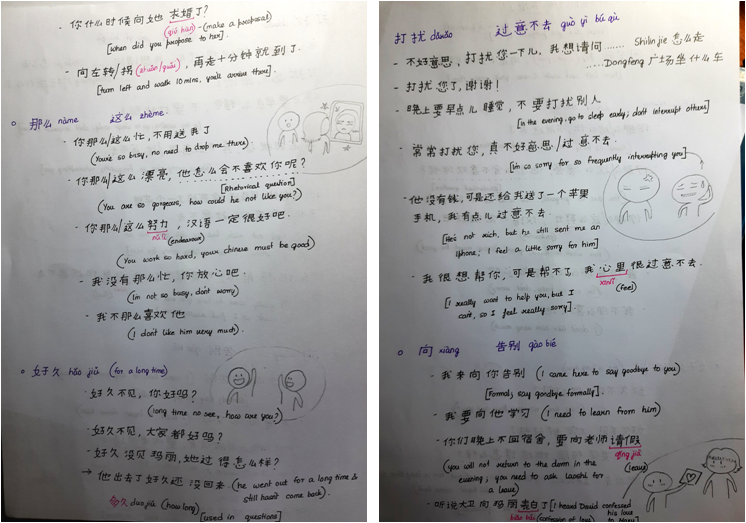 - 你什么时候向她求婚了?
(qiú hūn) - (make a proposal)
[when did you propose to her].
- 向左转/拐 (zhuǎn/guǎi), 再走十分钟就到了.
[turn left and walk 10 mins, you'll arrive there].
那么 nàme 这么 zhème.
- 你那么/这么忙, 不用送我了
(You're so busy, no need to drop me there)
- 你那么/这么漂亮, 他怎么会不喜欢你呢?
[Rhetorical question]
(You are so gorgeous, how could he not like you?)
- 你那么/这么努力, 汉语一定很好吧.
nǔlì (endeavour)
(You work so hard, your chinese must be good)
- 我没有那么忙, 你放心吧.
(I'm not so busy, don't worry)
- 我不那么喜欢他
(I don't like him very much).
好久 hǎo jiǔ (for a long time)
- 好久不见, 你好吗?
(long time no see, how are you?)
- 好久不见, 大家都好吗?
- 好久没见玛丽, 她过得怎么样?
→ 他出去了好久还没回来 (he went out for a long time & still hasn't come back).
多久 duō jiǔ (how long)
[used in questions]
打扰 dǎrǎo 过意不去 guò yì bú qù
- 不好意思, 打扰您一下儿, 我想请问...... Shilinjie 怎么走
......Dongfeng 广场坐什么车
- 打扰您了, 谢谢!
- 晚上要早点儿睡觉, 不要打扰别人
[in the evening, go to sleep early; don't interrupt others]
- 常常打扰您, 真不好意思/过意不去.
[I'm so sorry for so frequently interrupting you]
- 他没有钱, 可是还给我送了一个苹果
手机, 我有点儿过意不去.
[He's not rich, but he still sent me an
iphone; I feel a little sorry for him]
- 我很想帮你, 可是帮不了, 我心里很过意不去.
xīnlǐ (feel)
[I really want to help you, but I
can't, so I feel really sorry].
向 xiàng 告别 gào bié
- 我来向你告别 (I came here to say goodbye to you)
[Formal, say goodbye formally].
- 我要向他学习 (I need to learn from him)
- 你们晚上不回宿舍, 要向老师请假
qǐng jià (leave)
(you will not return to the dorm in the
evening; you need to ask laoshi for
a leave)
- 听说大卫向玛丽表白了 [I heard David confessed
his love
to Mary]
biǎo bái (confession of love)